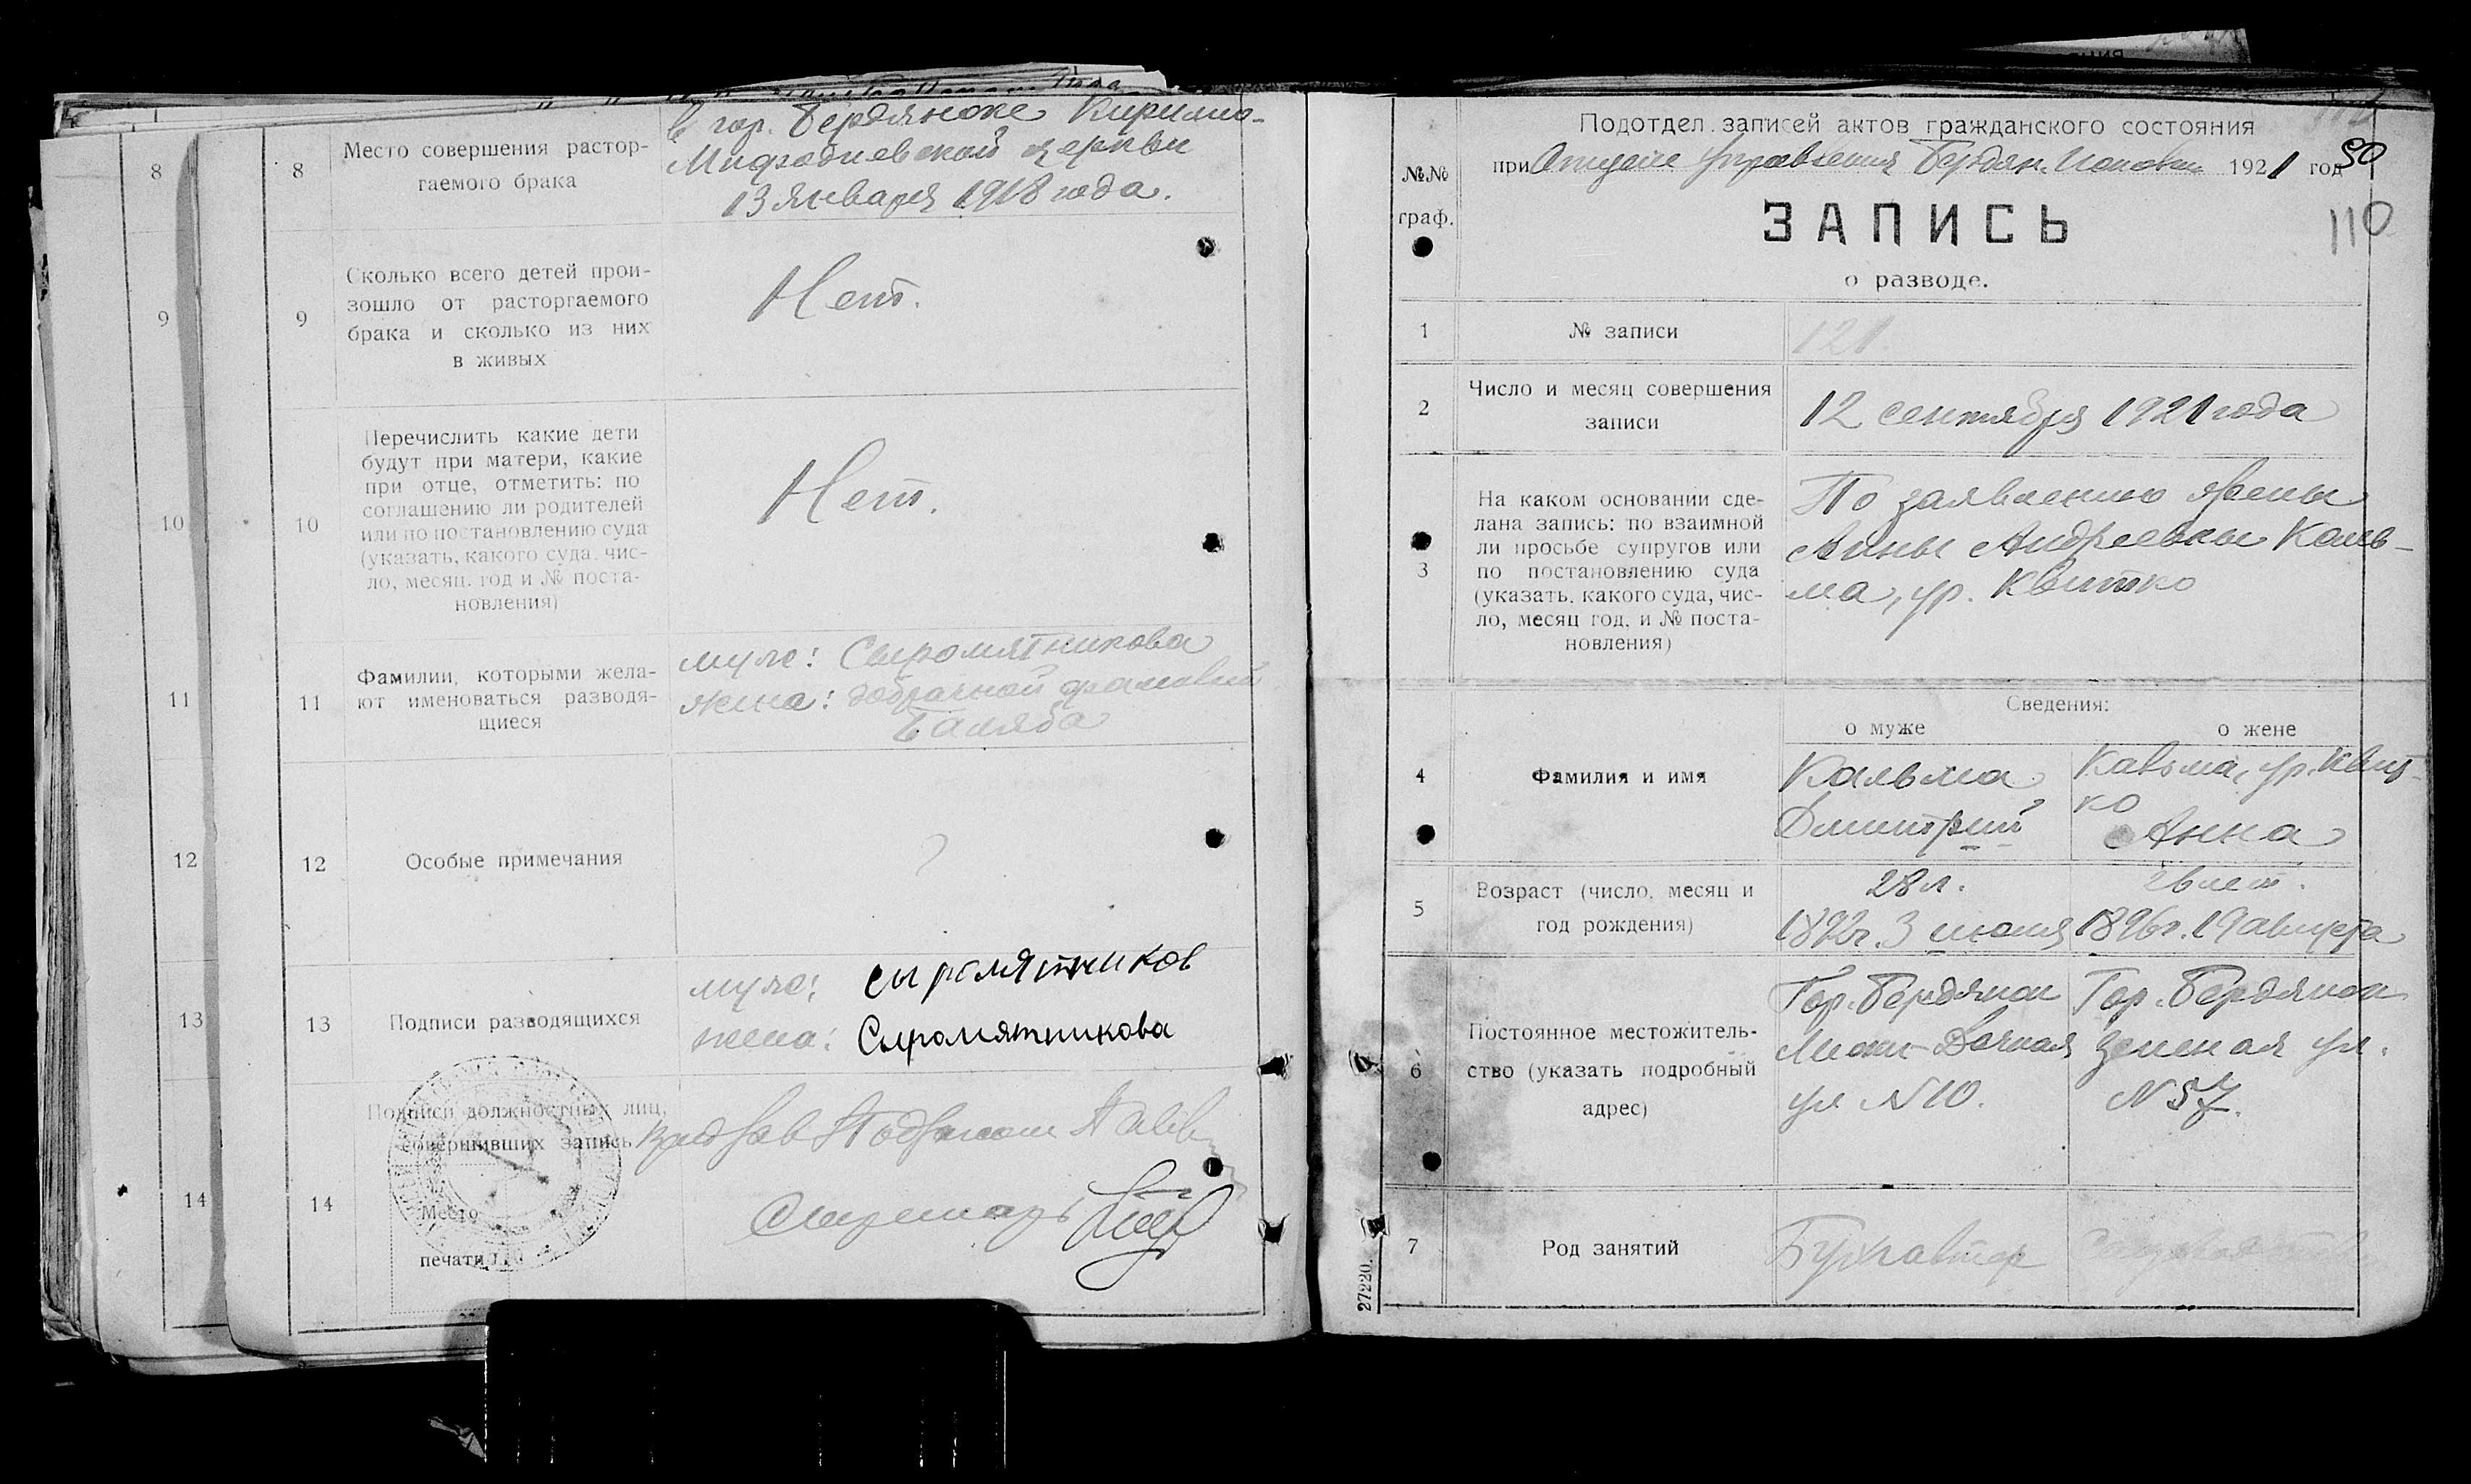 8
8
Место совершения растор-
гаемого брака
в гор. Бердянске Кирилло-
Мефодиевской церкви
13 января 1918 года.
9
9
Сколько всего детей прои-
зошло от расторгаемого
брака и сколько из них
в живых
Нет.
10
10
Перечислить какие дети
будут при матери, какие
при отце, отметить: по
соглашению ли родителей
или по постановлению суда
(указать, какого суда, чис-
ло, месяц, год и № поста-
новления)
Нет.
11
11
Фамилии, которыми жела-
ют именоваться разводя-
щиеся
муж: Сыромятникова
жена: добрачной фамилией
Баляба
12
12
Особые примечания
13
13
Подписи разводящихся
муж: Сыромятников
жена: Сыромятникова
14
14
Подписи должностных лиц,
совершивших запись
Место
печати
Секретарь
Подотдел записей актов гражданского состояния
при Отделе Управления Бердян. 1921 год
50
110
№№
граф.
ЗАПИСЬ
о разводе.
1
№ записи
121
2
Число и месяц совершения
записи
12 сентября 1921 года
3
На каком основании сде-
лана запись: по взаимной
ли просьбе супругов или
по постановлению суда
(указать, какого суда, чис-
ло, месяц год, и № поста-
новления)
По заявлению жены
Анны Андреевны Каль-
ма, ур. Квитко
Сведения:
о муже
о жене
4
Фамилия и имя
Кальма
Дмитрий
Кальма, ур. Квит-
ко
Анна
5
Возраст (число, месяц и
год рождения)
28 л.
3 июня
лет.
1896 г. 19 августа
6
Постоянное местожитель-
ство (указать подробный
адрес)
Гор. Бердянск
Дачная
ул N 10.
Гор. Бердянск
ул.
N 57.
7
Род занятий
Бухгалтер
27220.